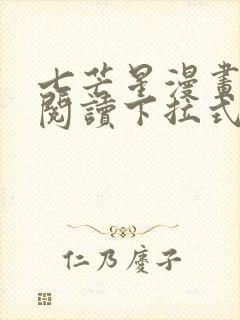 七芒星漫畫
閱讀下拉式
仁乃慶子